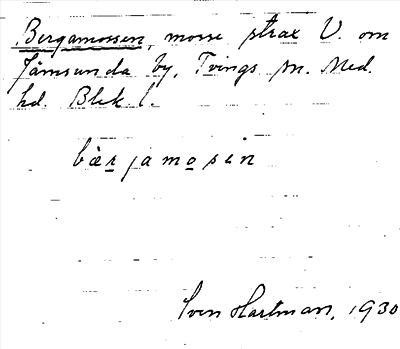 Bergamossen, mosse strax V. om
Jämsunda by, Tvings sn. Med.
hd. Blek. l.
bærjamosen
Sven Hartman, 1930